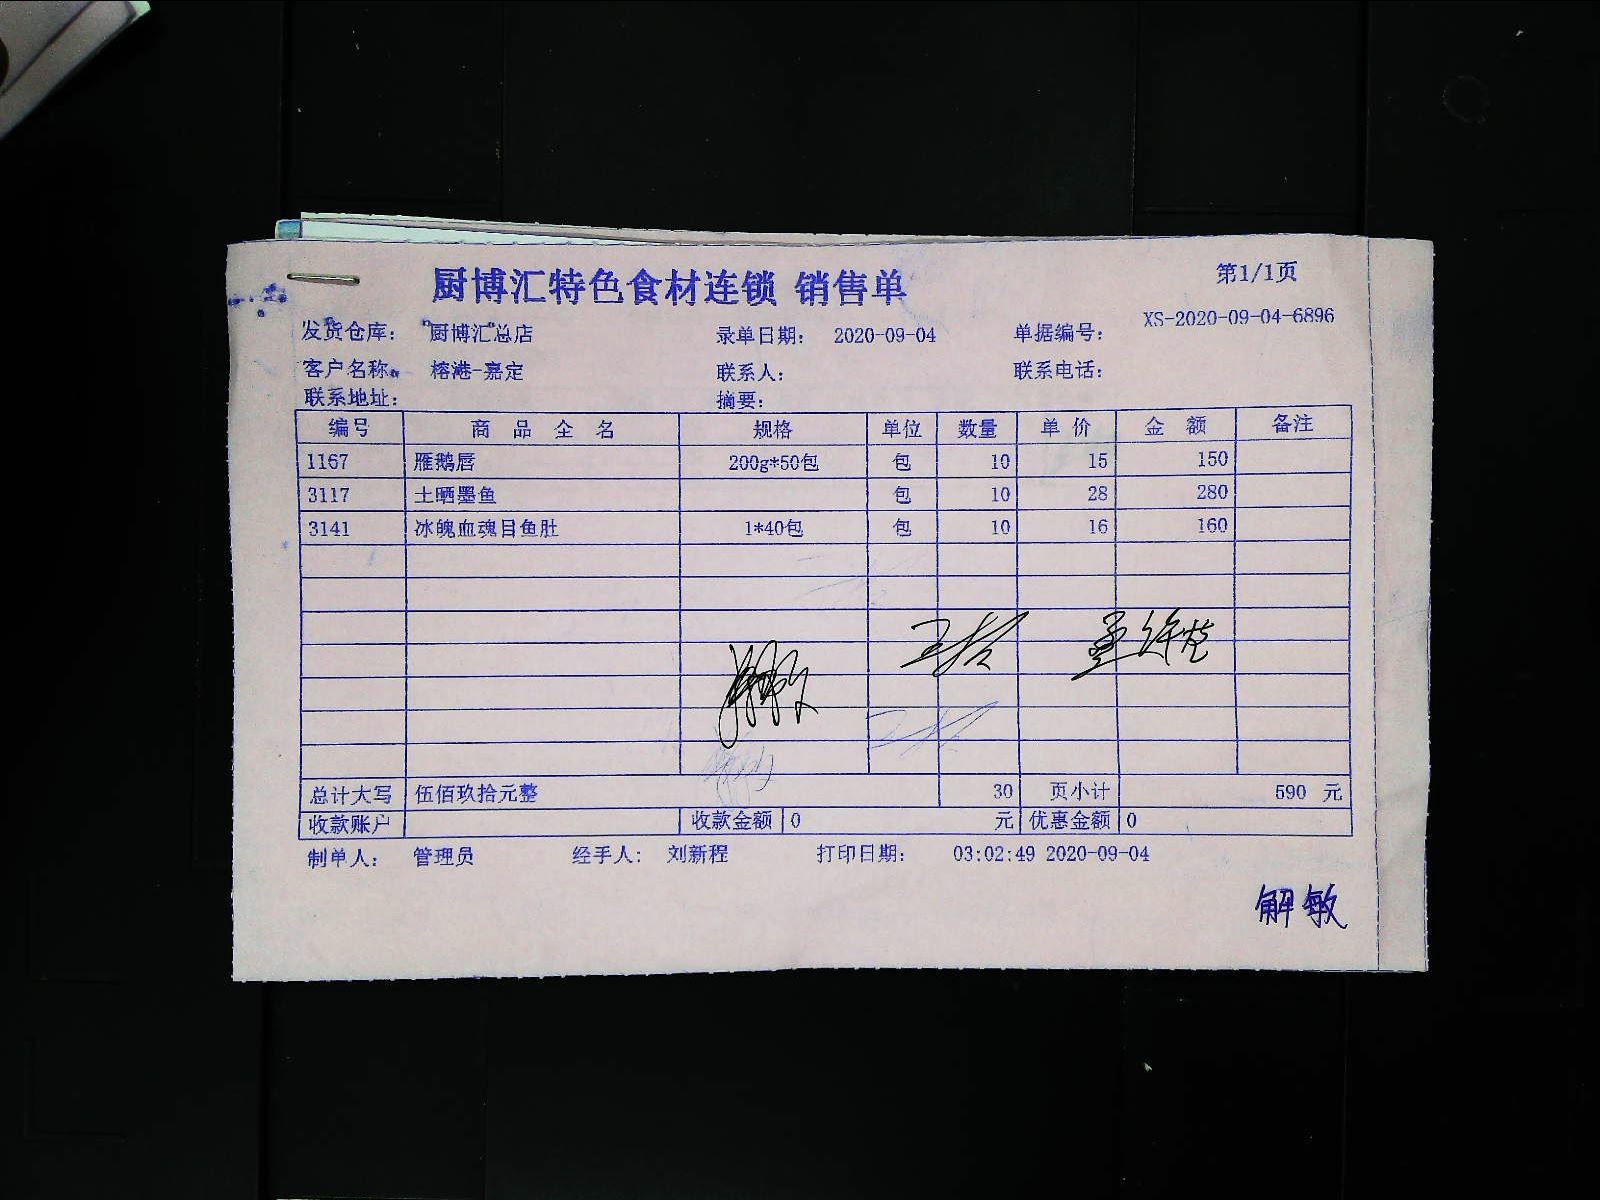 厨博汇特色食材连锁 销售单 第1/1页
发货仓库： 厨博汇总店 录单日期： 2020-09-04 单据编号： XS-2020-09-04-6896
客户名称： 榕港-嘉定 联系人： 联系电话：
联系地址： 摘要：
编号 商品全名 规格 单位 数量 单价 金额 备注
1167 雁鹅唇 200g*50包 包 10 15 150
3117 土晒墨鱼 包 10 28 280
3141 冰魄血魂目鱼肚 1*40包 包 10 16 160
总计大写 伍佰玖拾元整 30 页小计 590 元
收款账户 收款金额 0 元 优惠金额 0
制单人： 管理员 经手人： 刘新程 打印日期： 03:02:49 2020-09-04
解敏